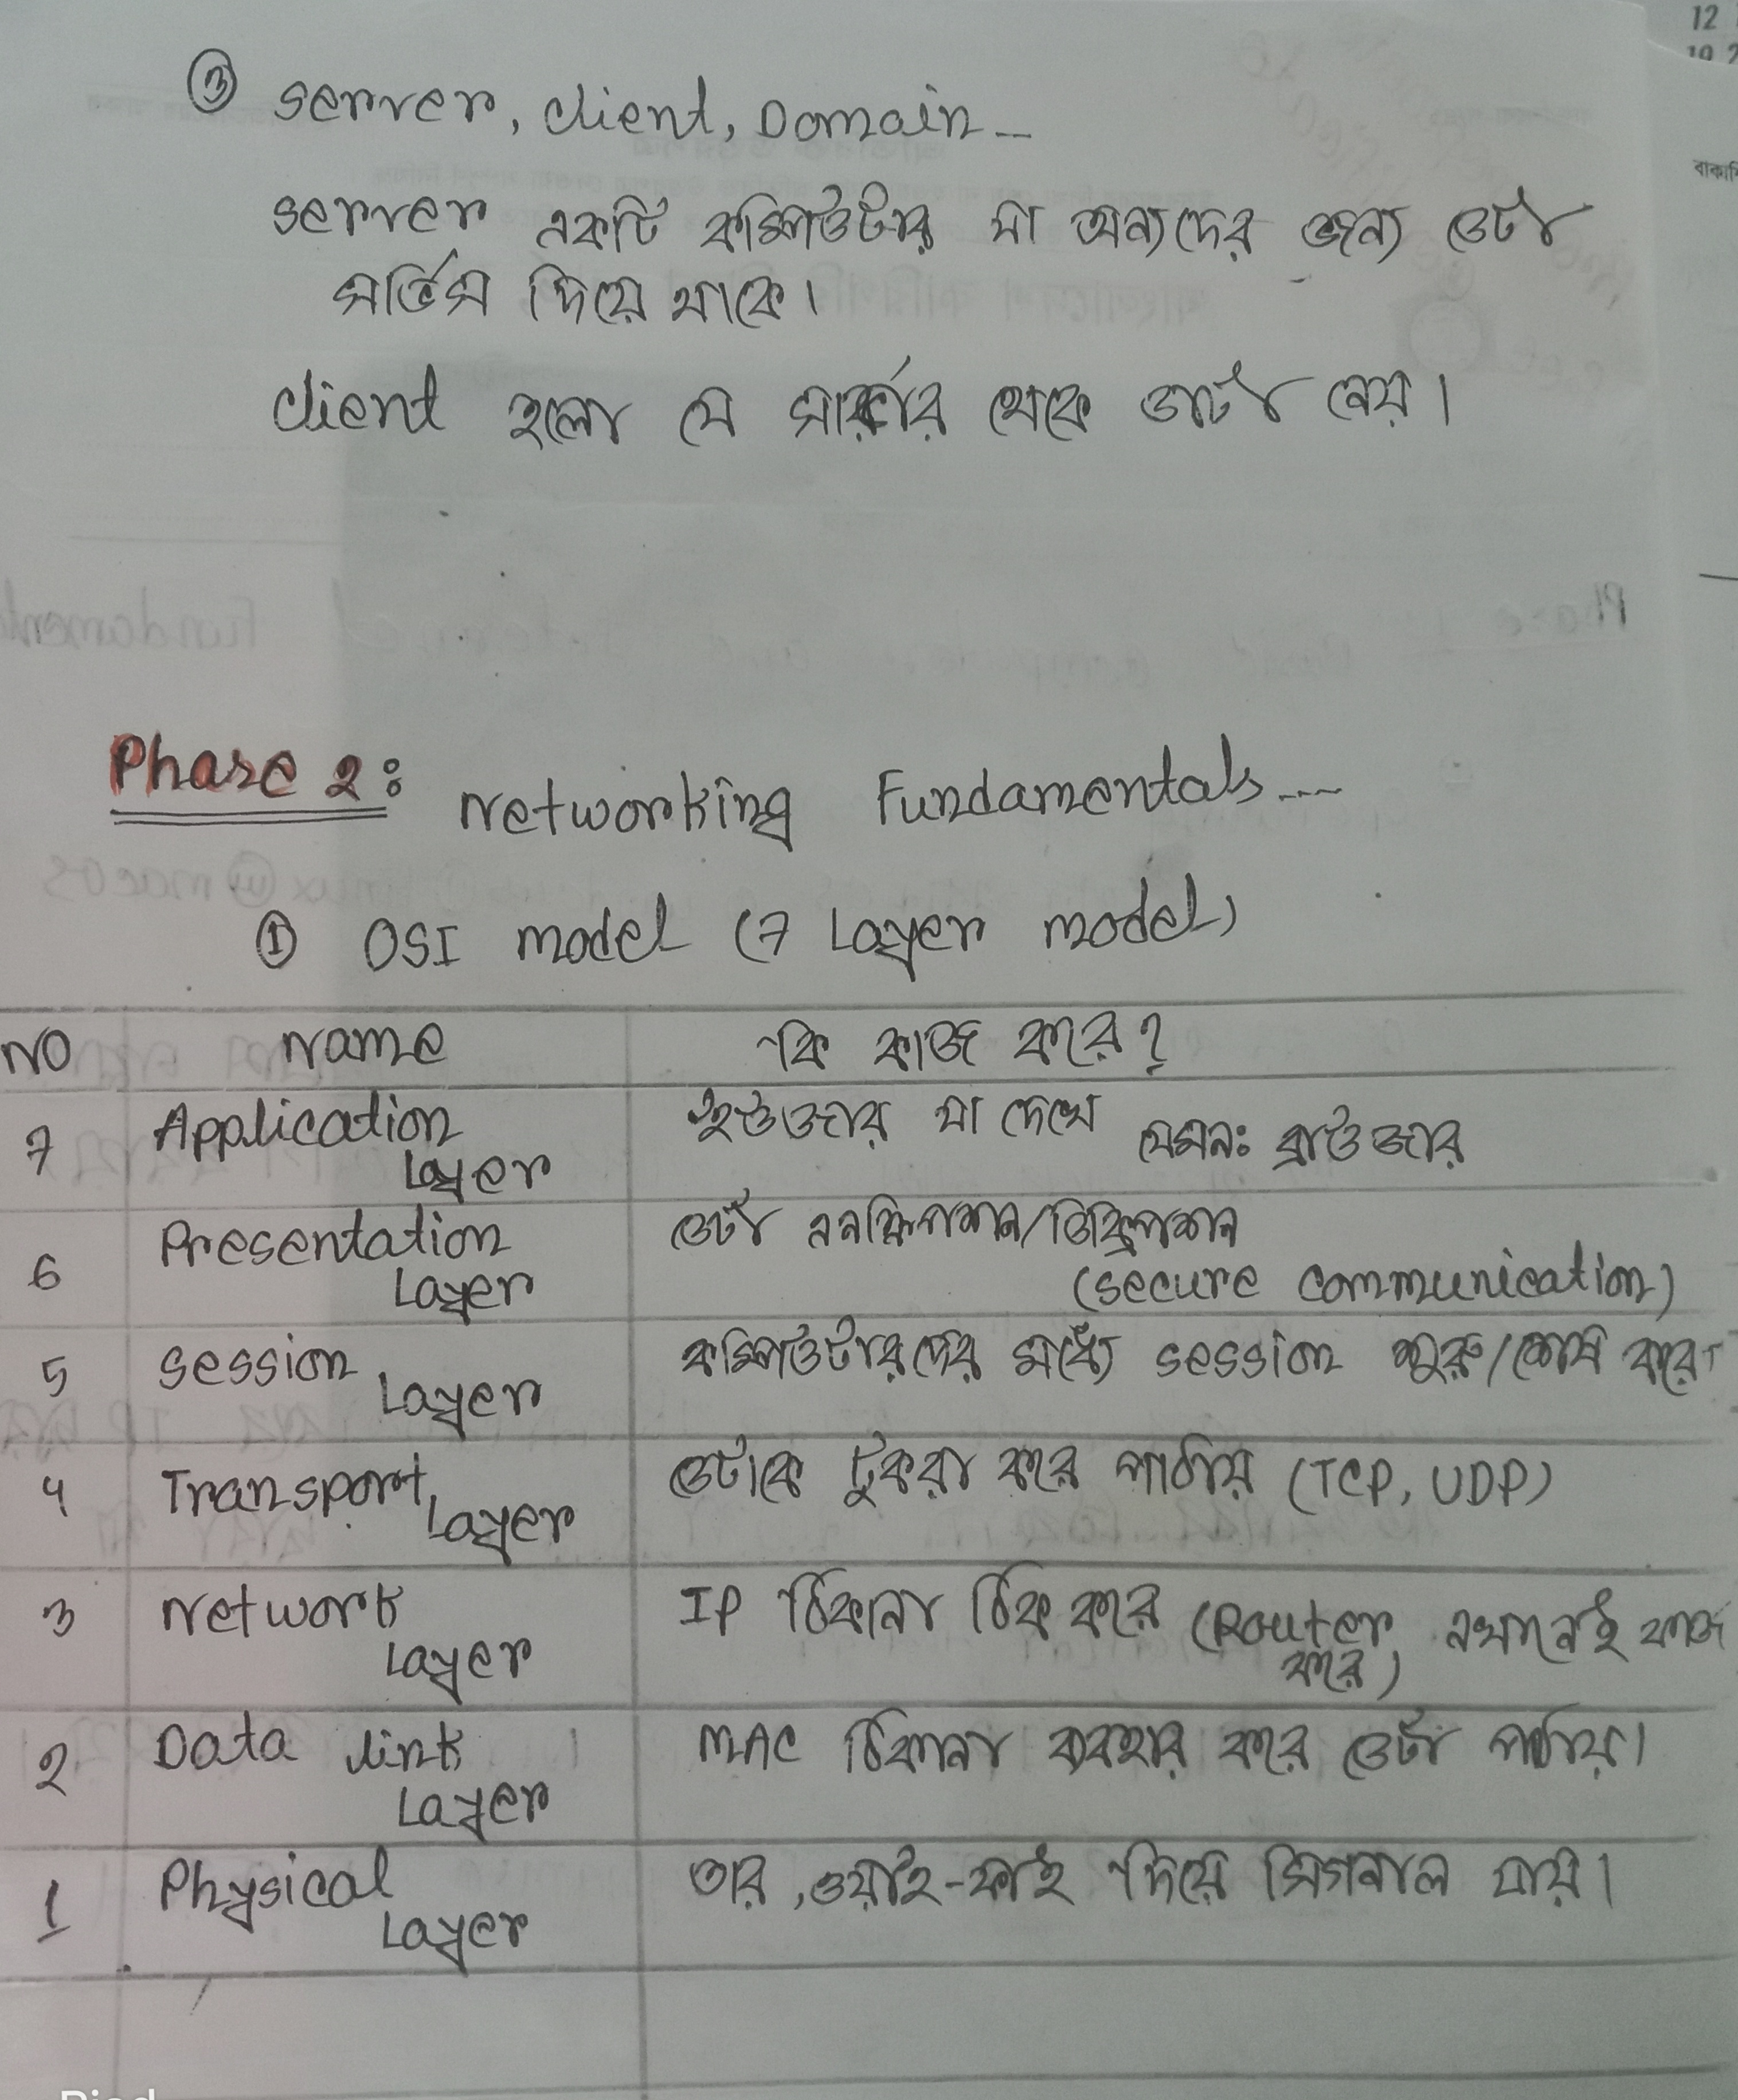 ③ server, client, Domain --
server একটি কম্পিউটার যা অন্যদের জন্য ডেটা
সার্ভিস দিয়ে থাকে।
client হলো যে সার্ভার থেকে ডাটা নেয়।
Phase 2: Networking Fundamentals ----
① OSI model (7 Layer model)
NO Name কি কাজ করে?
7 Application Layer ইউজার যা দেখে যেমনঃ ব্রাউজার
6 Presentation Layer ডেটা এনক্রিপশন/ডিক্রিপশন
(secure communication)
5 session Layer কম্পিউটারদের মধ্যে session শুরু/শেষ করে।
4 Transport Layer ডেটাকে টুকরা করে পাঠায় (TCP, UDP)
3 Network Layer IP ঠিকানা ঠিক করে (Router এখানেই কাজ
করে)
2 Data link Layer MAC ঠিকানা ব্যবহার করে ডেটা পাঠায়।
1 Physical Layer তার, ওয়াই-ফাই দিয়ে সিগনাল যায়।
12